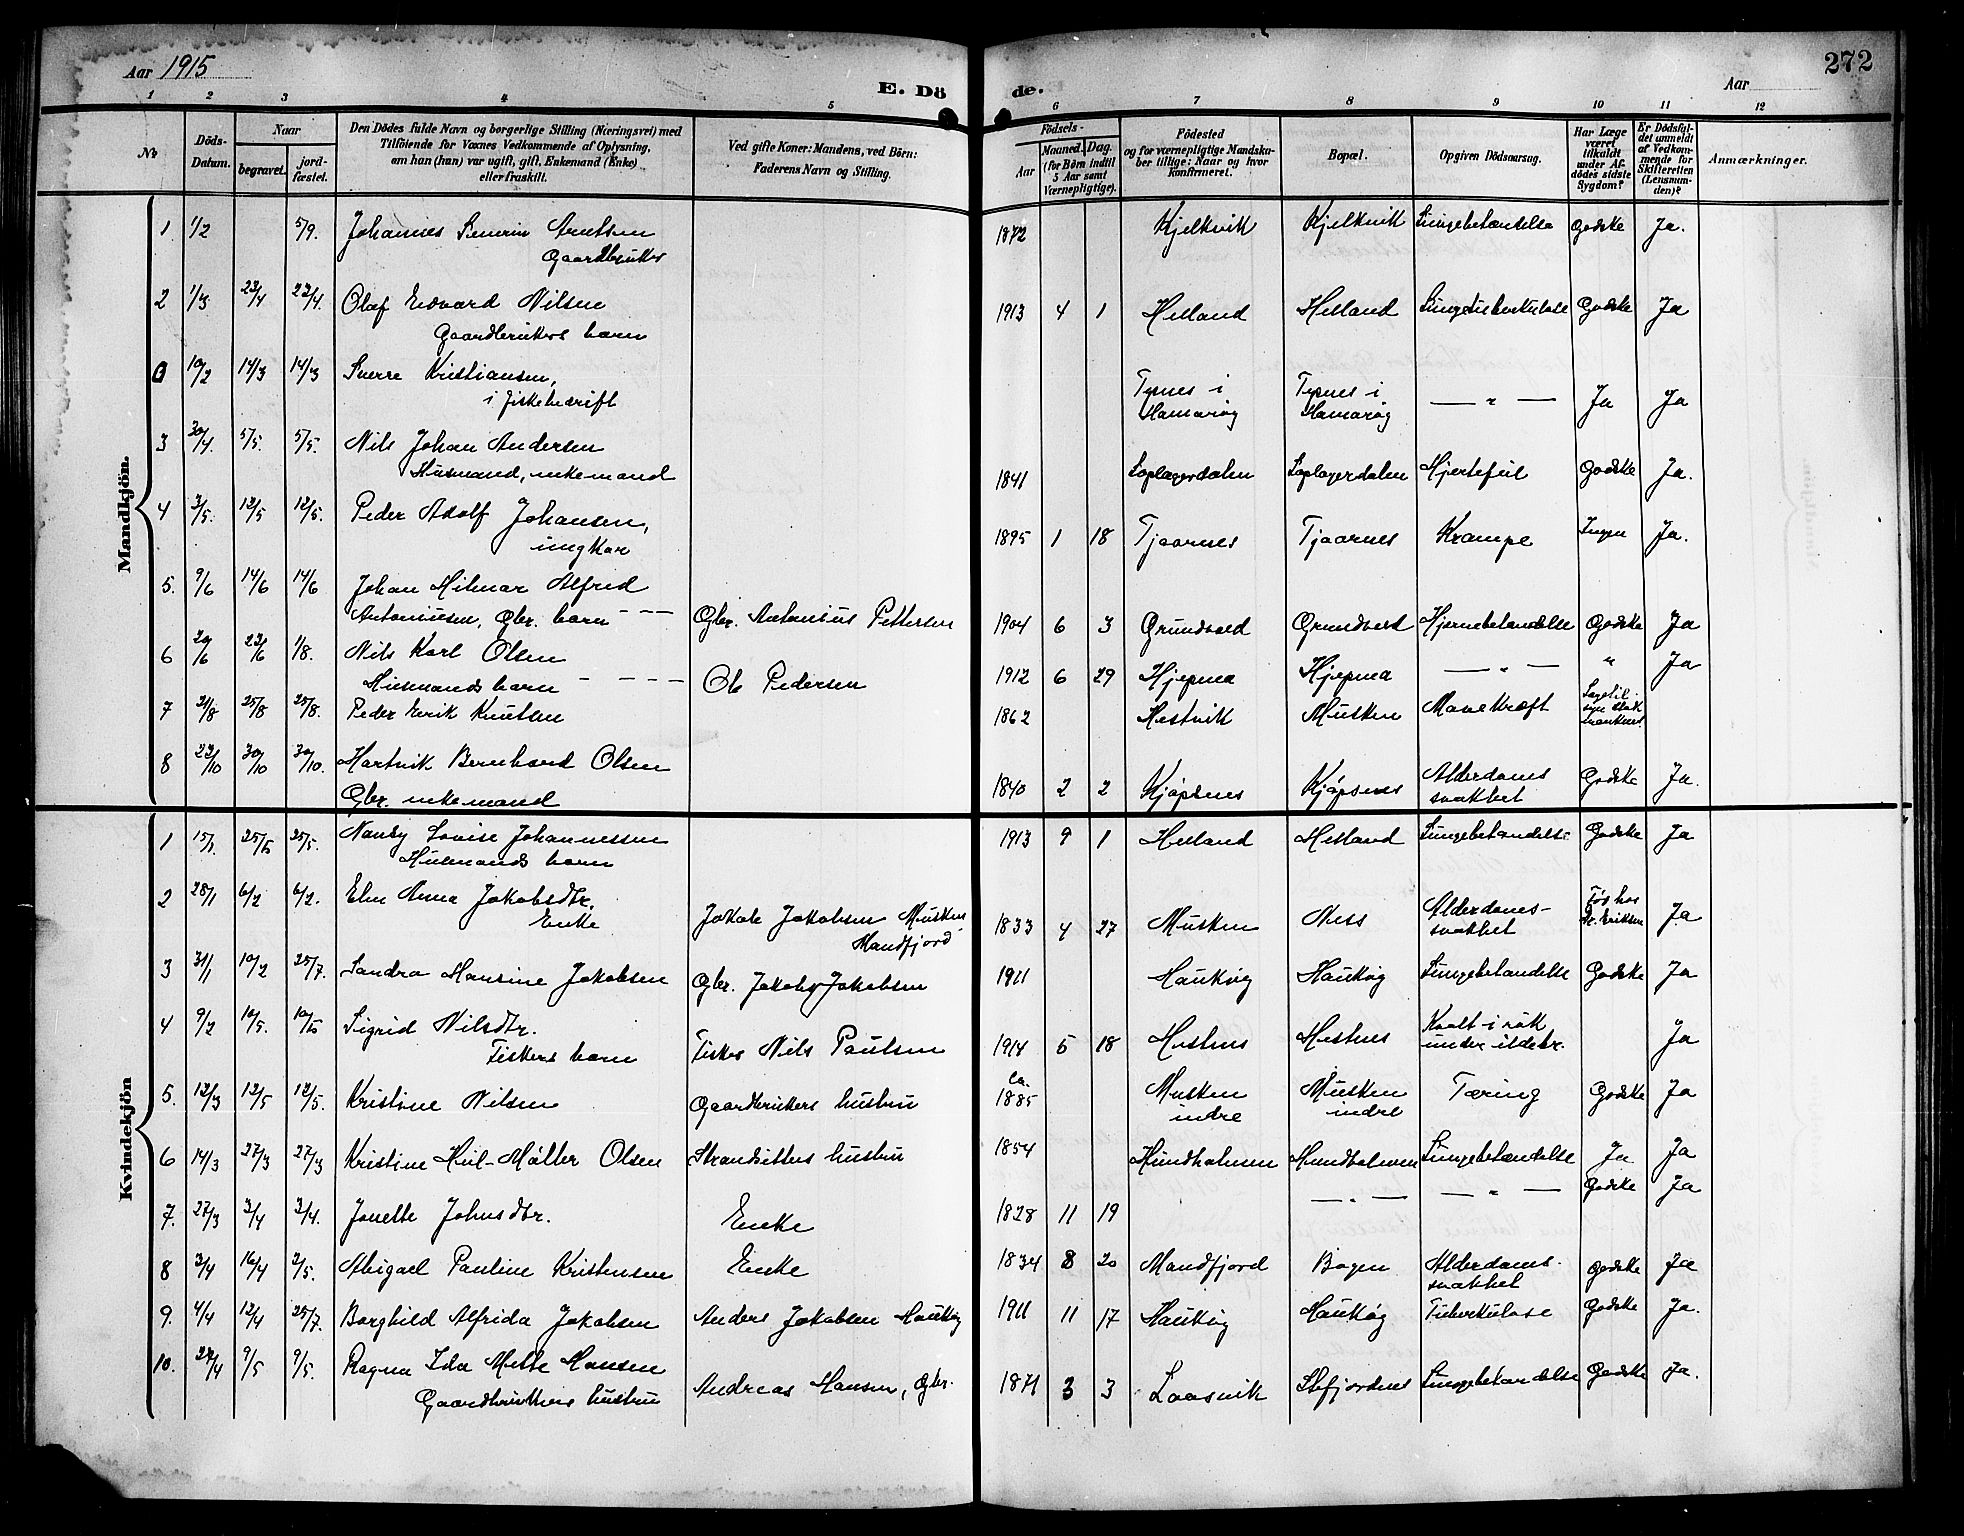 Aar 1915
E. Dö de.
Aar
272
1 2 3 4 5 6 7 8 9 10 11 12
No
Döds-Datum.
Naar
begravet.
jord-fæstet.
Den Dödes fulde Navn og borgerlige Stilling (Næringsvei) med
Tilföiende for Voxnes Vedkommende af Oplysning,
om han (hun) var ugift, gift, Enkemand (Enke)
eller fraskilt.
Ved gifte Koner: Mandens, ved Börn:
Faderens Navn og Stilling.
Födsels-
Aar
Maaned. Dag.
(for Börn indtil
5 Aar samt
Værnepligtige).
Födested
og for værnepligtige Mandska-
ber tillige: Naar og hvor
konfirmeret.
Bopæl.
Opgiven Dödsaarsag.
Har Læge
været
tilkaldt
under Af-
dödes sidste
Sygdom?
Er Dödsful-
det anmeldt
af Vedkom-
mende for
Skifteretten
(Lensman-
den)?
Anmærkninger.
Mandkjön.
1. 1/2 5/9. Johannes Senerin Arntsen 1872 Kjelkvik Kjelkvik Lungebetændelse Godske Ja.
Gaardbruker
2 1/3 22/4 22/4. Olaf Edvard Nilsen 1913 4 1 Helland Helland Lungetuberkulose Godske Ja
Gaardbrukers barn
0 10/2 14/3 14/3 Sverre Kristiansen, Tysnes i Tysnes i — " — Ja Ja
i fiskebedrift Hamarøy Hamarøy
3 30/4. 5/5. 5/5. Nils Johan Andersen
Husmand, enkemand 1841 Hjertefeil Godske Ja.
4 3/5. 12/5 12/5. Peder Adolf Johansen, 1895 1 18 Tjaarnes Tjaarnes Krampe Ingen Ja.
ungkar
5. 9/6 14/6 14/6 Johan Hilmar Alfred
Antoniusen, Gbr. barn - — — Gbr. Antonius Pettersen 1904 6 3 Grundvard Grundvard Hjernebetændelse Godske Ja
6 20/6 22/6 1/8. Nils Karl Olsen
Husmands barn - — — — Ole Pedersen 1912 6 29 Hjepma Hjepma — " — " Ja
7 21/8 25/8 25/8. Peder Erik Knutsen 1862 Hestvik Musken Mavekræft
8 22/10 30/10 30/10. Hartvik Bernhard Olsen 1840 2 2 Kjøpsnes Kjøpsnes Alderdoms Godske Ja.
Gbr. enkemand svakhet
Kvindekjön
1 15/1. 25/5 25/5. Nandy Lovise Johannessen 1913 9 1 Helland Helland Lungebetændelse Godske Ja
Husmands barn
2 28/1 6/2 6/2. Elen Anna Jakobsdtr. Jakob Jakobsen Musken 1833 4 27 Musken Ness Alderdoms- Før hos Ja
Enke Mandfjord svakhet Dr. Eriksen
3 31/1 10/2 25/7. Sandra Hansine Jakobsen Gbr. Jakob Jakobsen 1911 Haukøy Haukøy Lungebetændelse Godske Ja
4 9/2 10/5. 10/5 Sigrid Nilsdtr. Kvalt i røk
Fiskers barn Fisker Nils Paulsen 1914 5 18 Hestnes Hestnes under ildebr. Ja
5. 12/3 12/5 12/5. Kristine Nilsen Gaardbrukers hustru ca. 1885 Musken Musken Tæring Godske Ja
indre indre
6 14/3 27/3 27/3 Kristine Hiil-Møller Olsen Strandsitters hustru 1854 Hundholmen Hundholmen Lungebetændelse Ja Ja
7. 27/3 3/4 3/4. Jonette Johnsdtr. Enke 1828 11 19 — " — — " — Godske Ja
8 3/4 16/4 2/5. Abigael Pauline Kristensen Enke 1834 8 20 Mandfjord Bogen Alderdoms- Godske Ja
svakhet
9. 4/4 12/4 25/7. Borghild Alfrida Jakobsen Anders Jakobsen Haukøy 1911 11 17 Haukøy Haukøy Tuberkulose Godske Ja.
10. 27/4 9/5 9/5. Ragna Ida Mette Hansen Andreas Hansen, Gbr. 1871 3 3 Laasvik Stefjordnes Lungebetændelse Godske Ja.
Gaardbrukers hustru